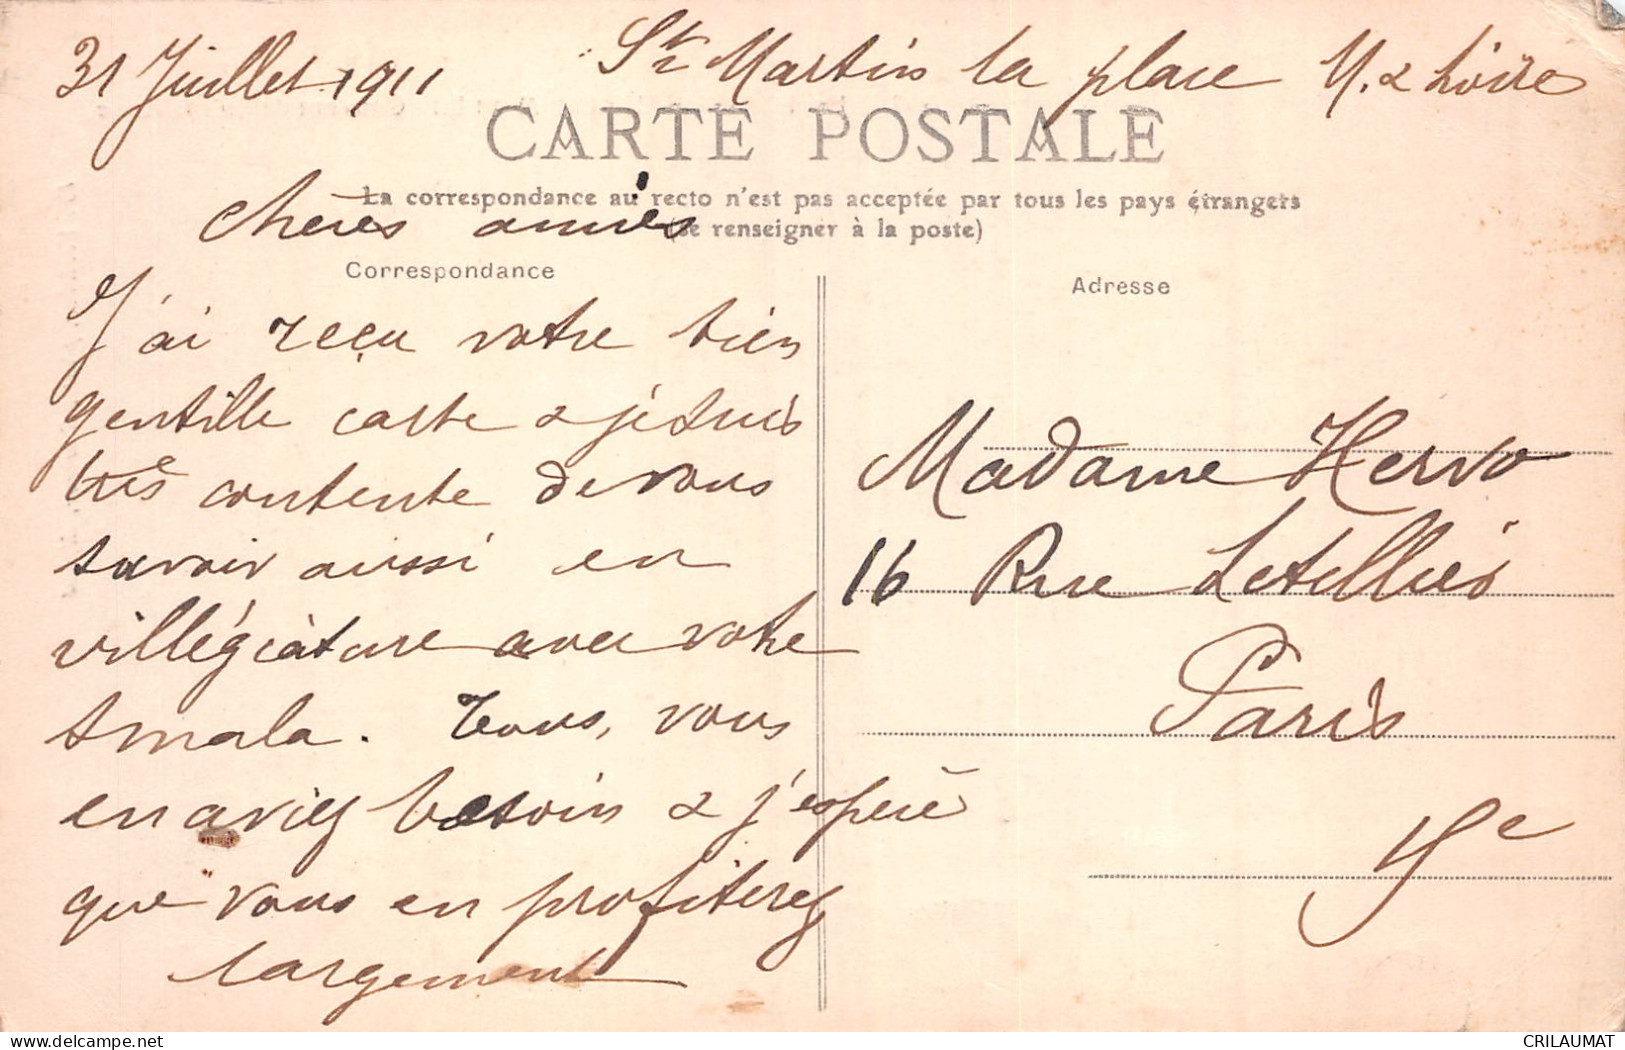 31 Juillet 1911 St Martin la place M. & Loire
CARTE POSTALE
La correspondance au recto n'est pas acceptée par tous les pays étrangers
(Se renseigner à la poste)
Chères amies
Correspondance
J'ai reçu votre bien
gentille carte & je suis
très contente de vous
savoir aussi en
villégiature avec votre
smala. Tous, vous
en aviez besoin & j'espère
que vous en profiterez
largement
Adresse
Madame Hervo
16 Rue Letellier
Paris
delcampe.net
CRILAUMAT